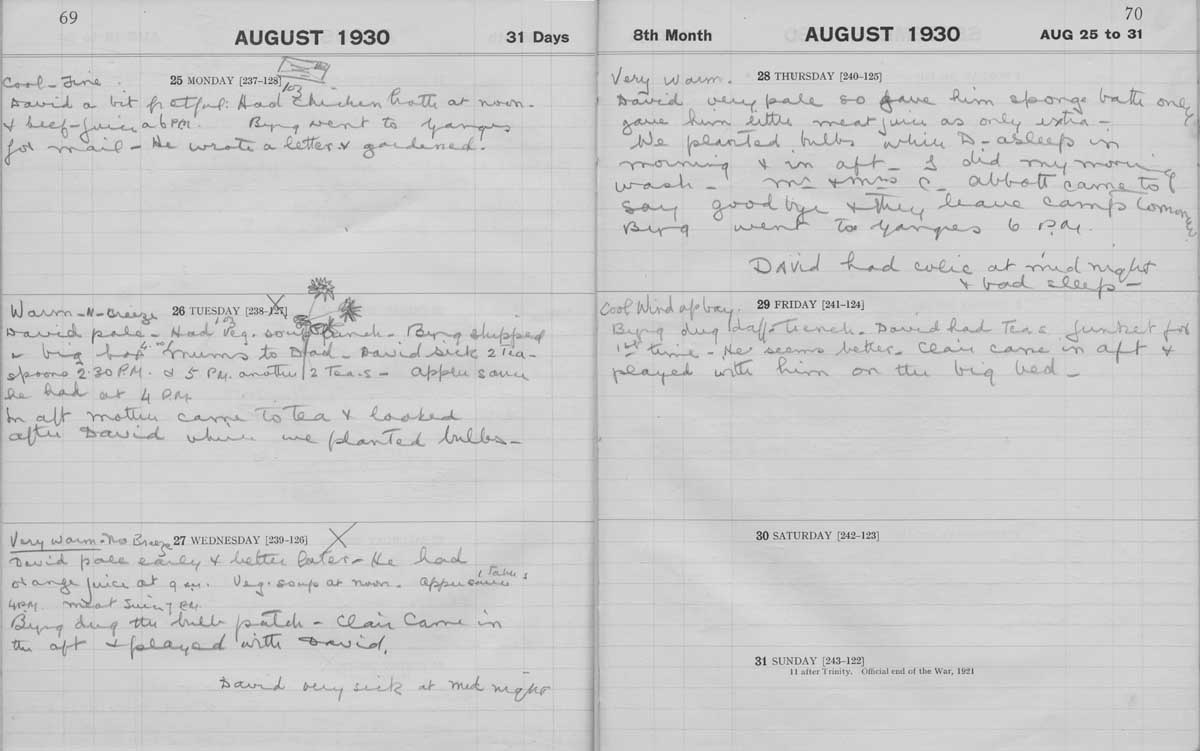 69
AUGUST 1930 31 Days
Cool - Fine. 25 MONDAY [237-128]
David a bit fretful: Had 1 oz chicken broth at noon.
& beef-juice at 6 P.M. Byng went to Ganges
for mail - He wrote a letter & gardened.
Warm - N - Breeze 26 TUESDAY [238-127]
David pale - Had 1 oz Veg. soup lunch - Byng shipped
a big box mums to Dad - David sick 2 tea-
spoons 2.30 P.M. & 5 P.M. another 2 Teas - apple sauce
he had at 4 P.M.
In aft mother came to tea & looked
after David while we planted bulbs -
Very warm - No Breeze 27 WEDNESDAY [239-126]
David pale early & better later - He had
orange juice at 9 a.m. Veg. soup at noon. apple sauce
4 P.M. meat juice 7 P.M.
Byng dug the bulb patch - Clair came in
the aft & played with David.
David very sick at mid night
70
8th Month AUGUST 1930 AUG 25 to 31
Very warm. 28 THURSDAY [240-125]
David very pale so gave him sponge bath only
gave him little meat juice as only extra -
We planted bulbs while D - asleep in
morning & in aft - I did my morning
wash - Mr & Mrs C - Abbott came to
say goodbye & they leave camp tomorrow
Byng went to Ganges 6 P.M.
David had colic at mid night
& bad sleep -
Cool Wind up bay. 29 FRIDAY [241-124]
Byng dug daff trench. David had Teas junket for
1st time - He seems better - Clair came in aft &
played with him on the big bed -
30 SATURDAY [242-123]
31 SUNDAY [243-122]
11 after Trinity. Official end of the War, 1921